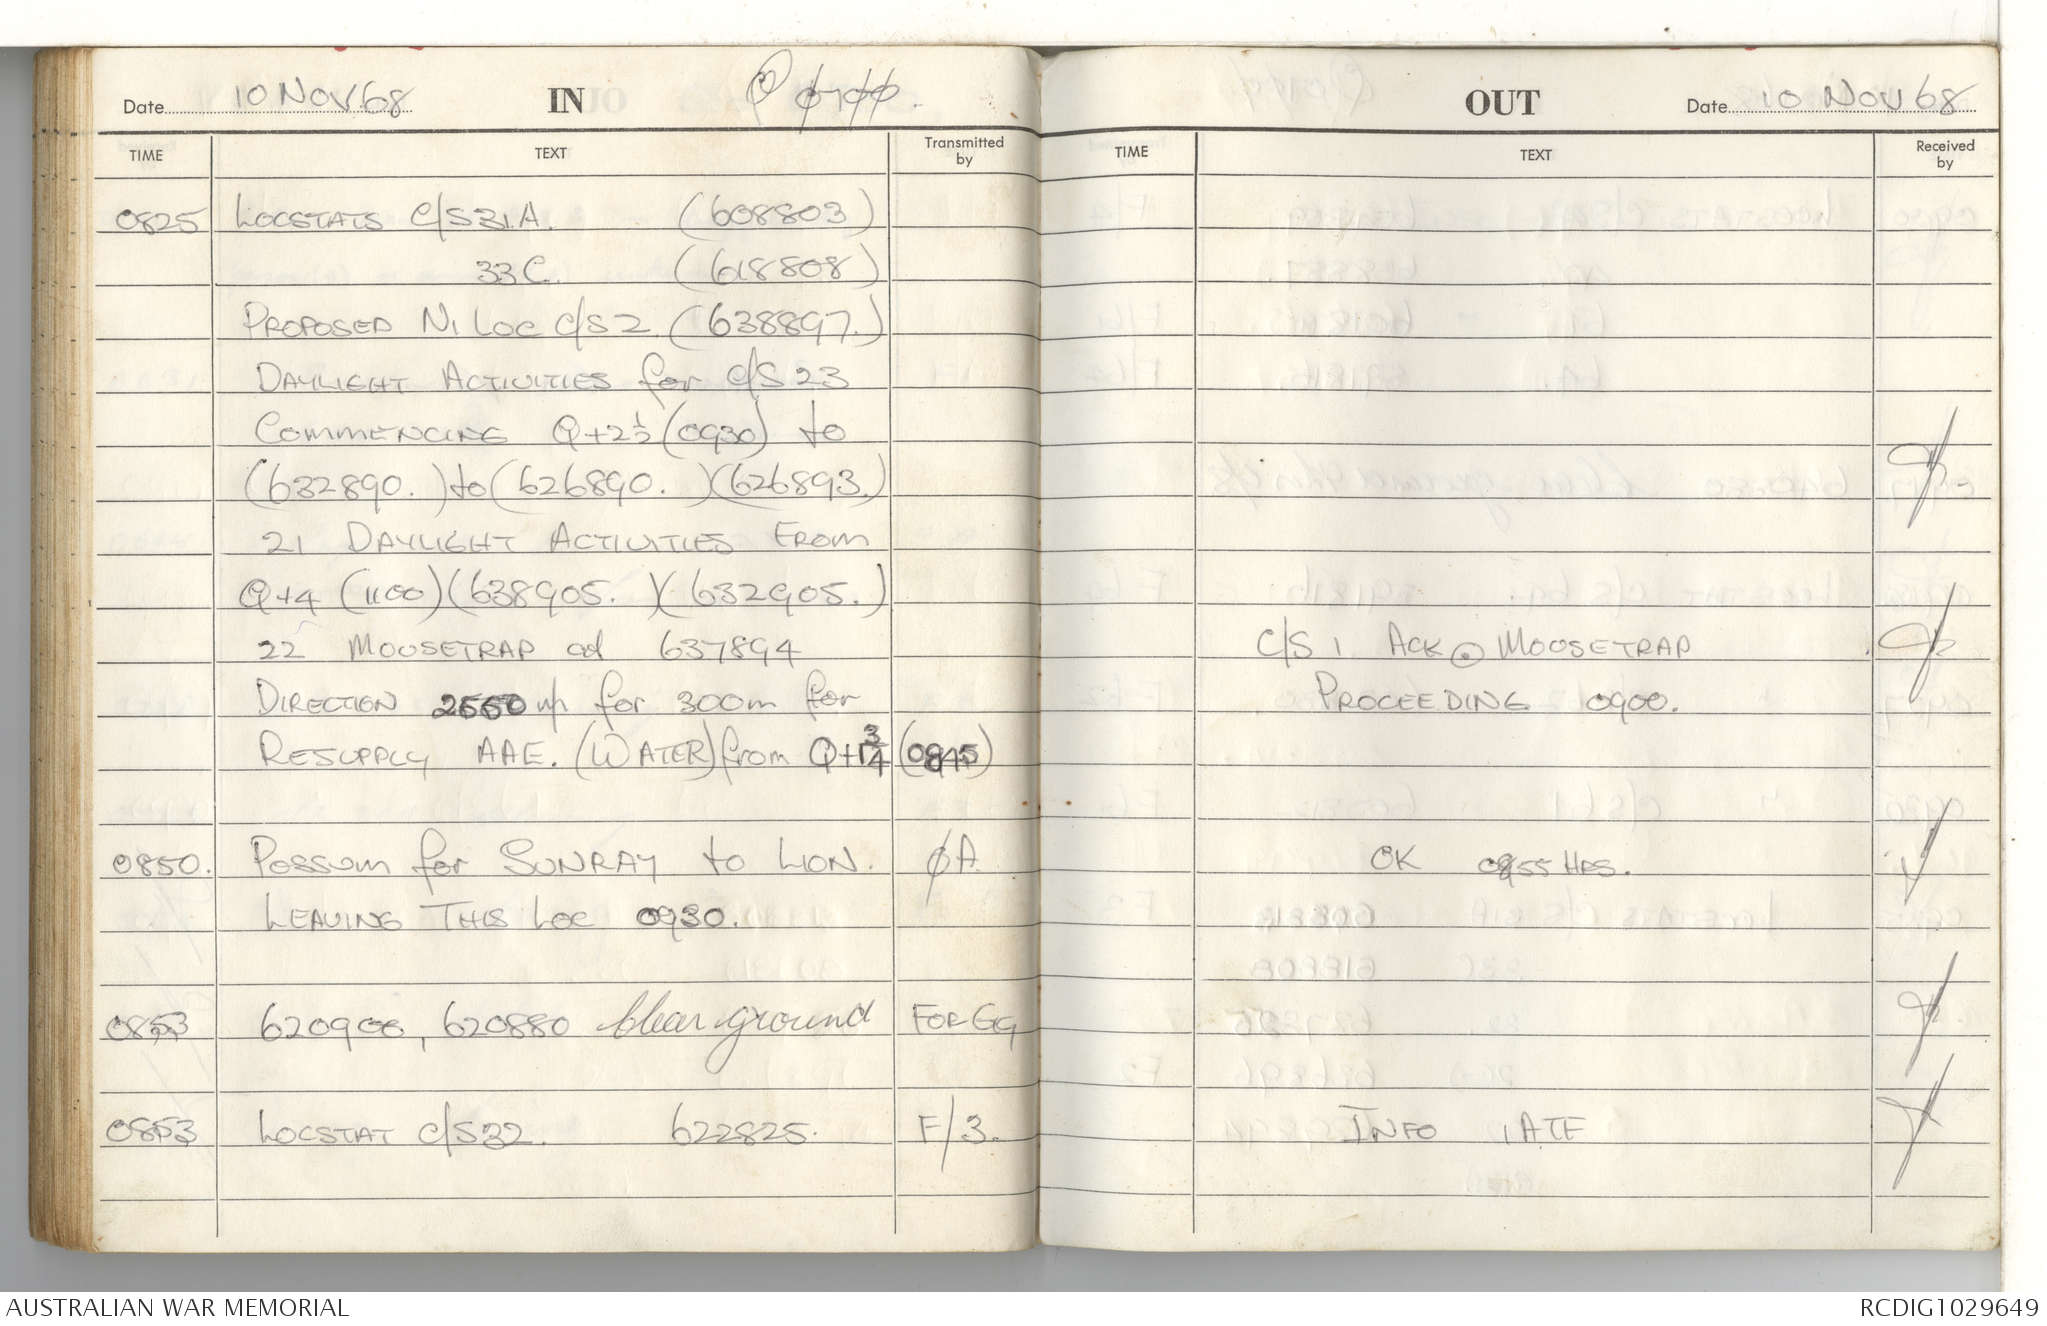 Date 10 NOV.68 IN Q 0700.
TIME TEXT Transmitted by
0825 LOCSTATS C/S 31A. (608803)
33C. (618808)
PROPOSED N1 LOC C/S 2 (638897.)
DAYLIGHT ACTIVITIES for C/S 23
COMMENCING Q+2½ (0930) to
(632890. ) to (626890. ) (626893.)
21 DAYLIGHT ACTIVITIES FROM
Q+4 (1100) (638905. ) (632905.)
22 MOOSETRAP at 637894
DIRECTION for 300m for
RESUPPLY AAE. (WATER) from Q+1¾ (0845)
0850. POSSUM for SUNRAY to LION. ØA
LEAVING THIS LOC 0930.
0853 620900, 620880 clear ground FOR G9
0853 LOCSTAT C/S 32. 622825. F/3.
OUT Date 10 NOV 68
TIME TEXT Received by
C/S 1 ACK @ MOOSETRAP
PROCEEDING 0900.
OK 0855 HRS.
INFO LATE
AUSTRALIAN WAR MEMORIAL RCDIG1029649